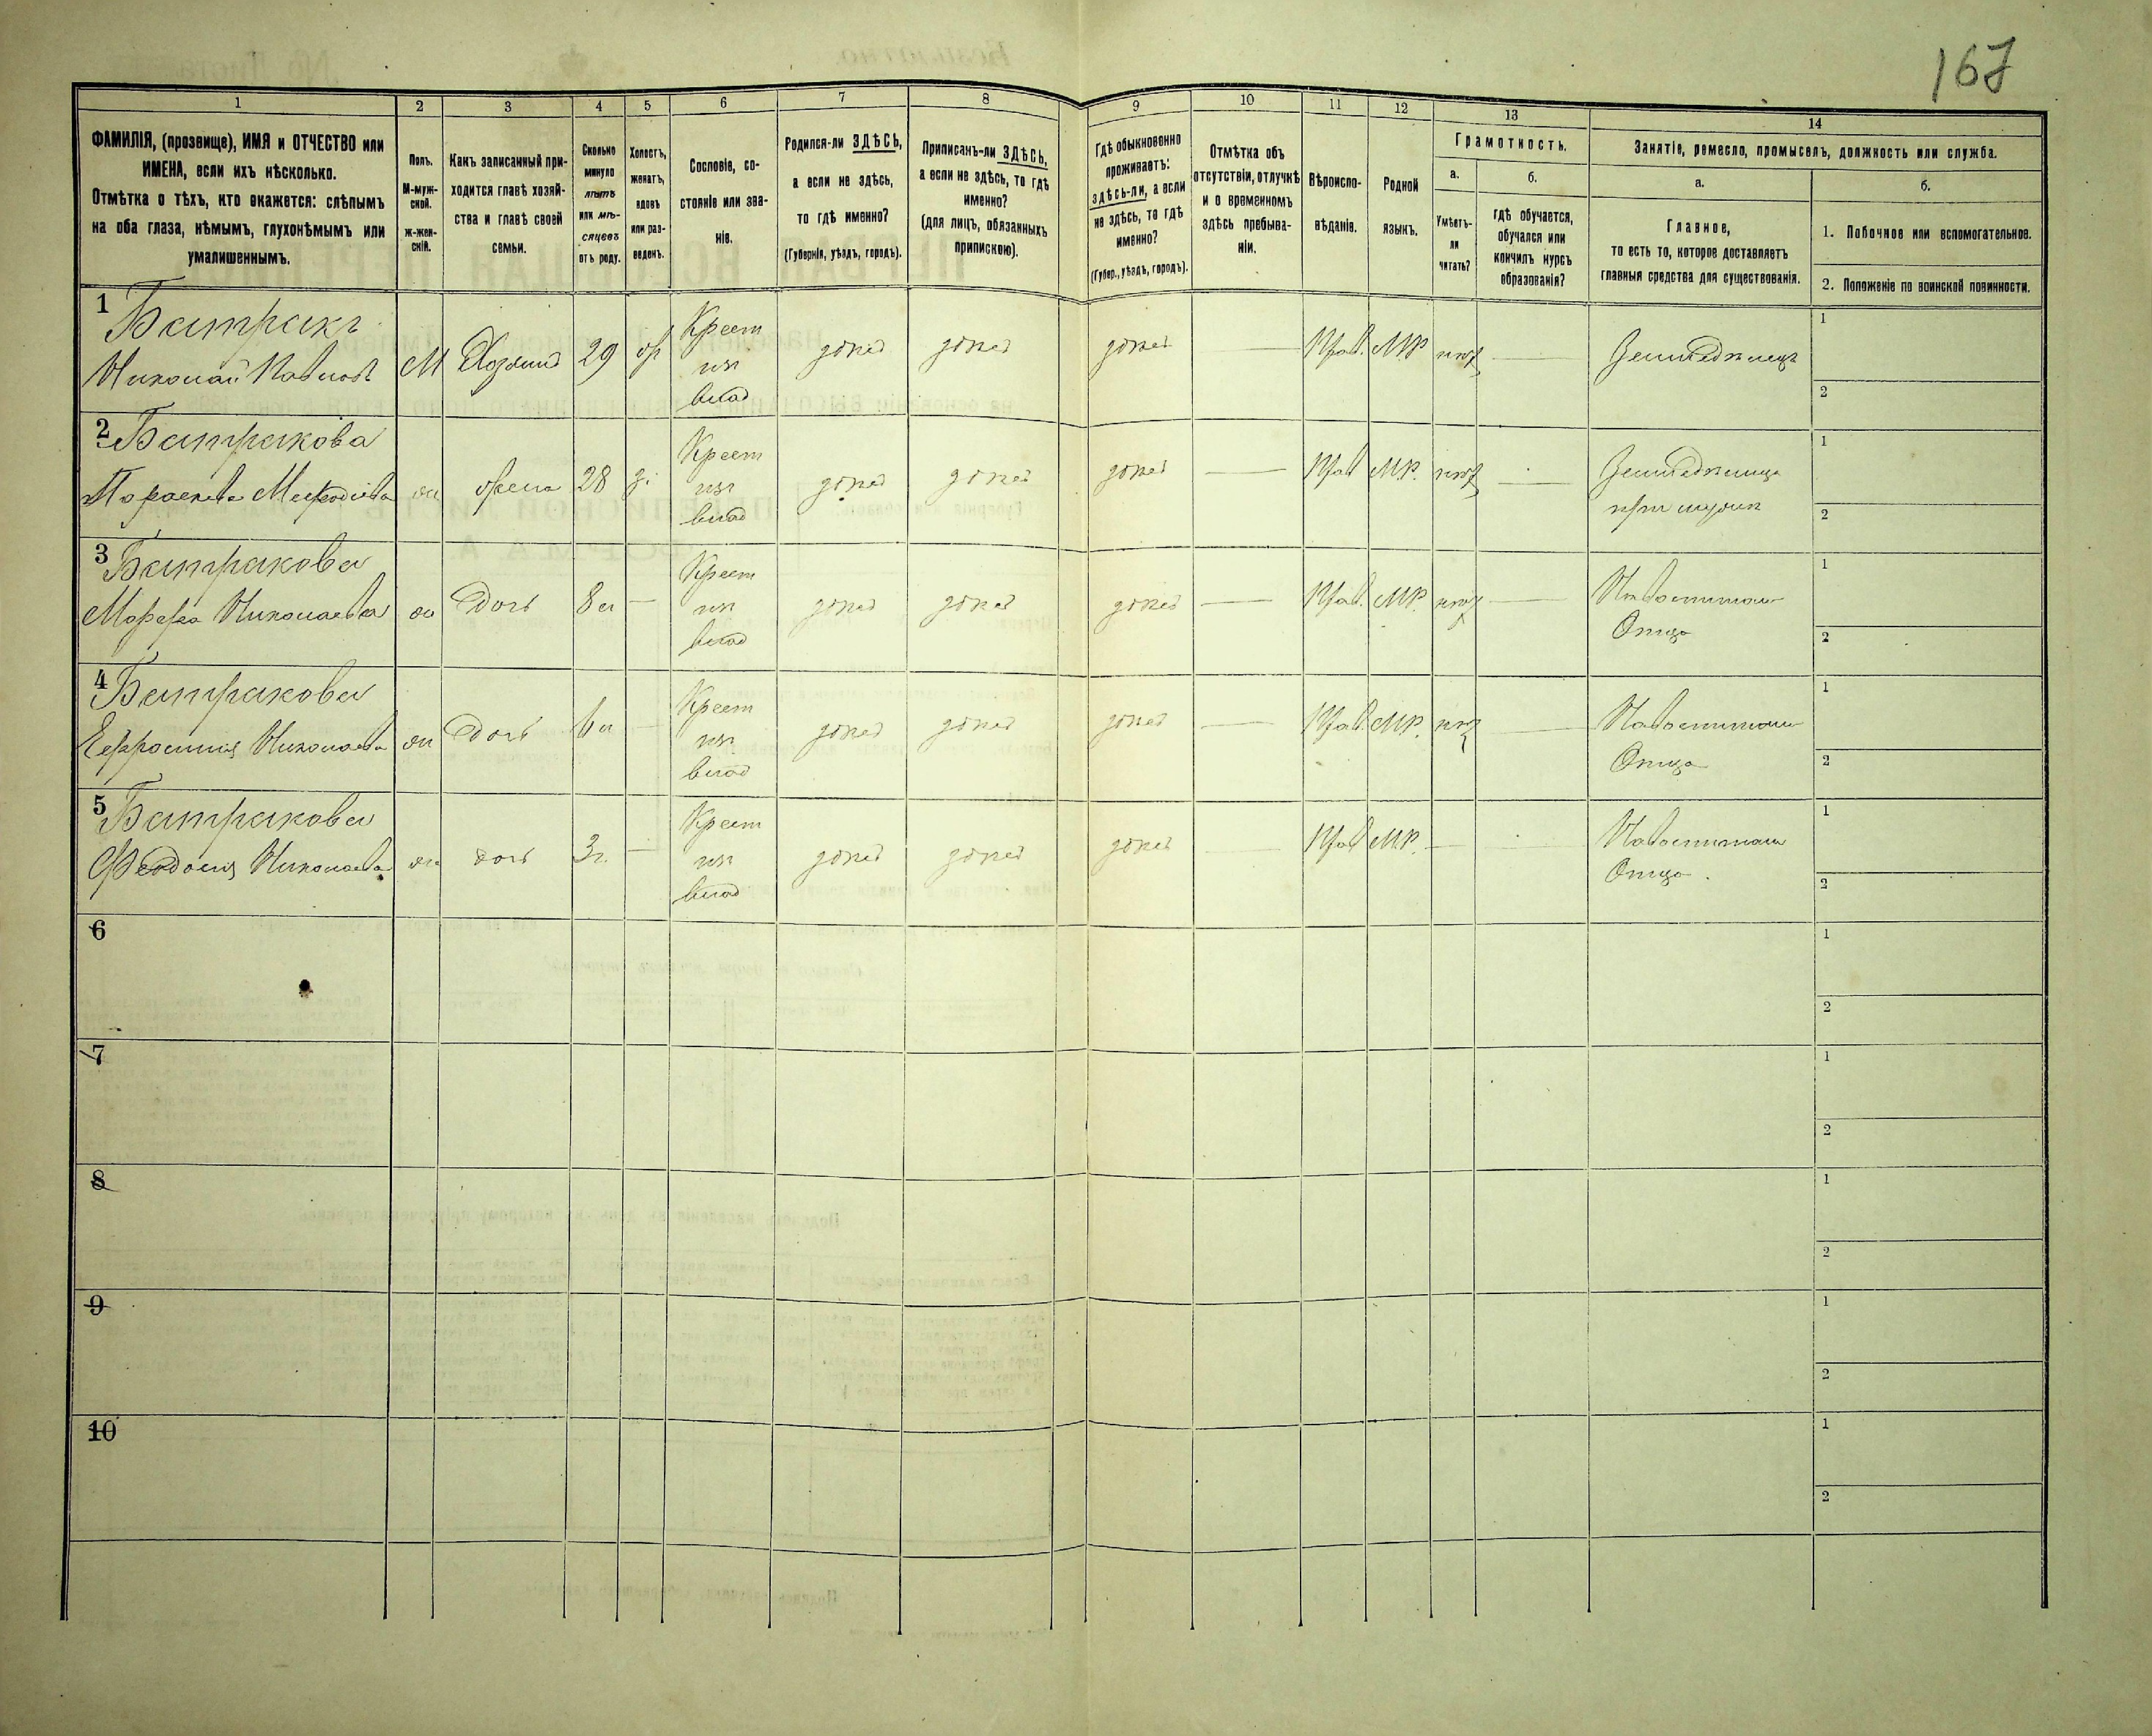 167
1 2 3 4 5 6 7 8 9 10 11 12 13 14
ФАМИЛІЯ, (прозвище), ИМЯ и ОТЧЕСТВО или
ИМЕНА, если ихъ нѣсколько.
Отмѣтка о тѣхъ, кто окажется: слѣпымъ
на оба глаза, нѣмымъ, глухонѣмымъ или
умалишеннымъ.
Полъ.
М-муж-
ской.
Ж-жен-
скій.
Какъ записанный при-
ходится главѣ хозяй-
ства и главѣ своей
семьи.
Сколько
минуло
лѣтъ
или мѣ-
сяцевъ
отъ роду.
Холостъ,
женатъ,
вдовъ
или раз-
веденъ.
Сословіе, со-
стояніе или зва-
ніе.
Родился-ли ЗДѢСЬ,
а если не здѣсь,
то гдѣ именно?
(Губернія, уѣздъ, городъ).
Приписанъ-ли ЗДѢСЬ,
а если не здѣсь, то гдѣ
именно?
(для лицъ, обязанныхъ
припискою).
Гдѣ обыкновенно
проживаетъ:
здѣсь-ли, а если
не здѣсь, то гдѣ
именно?
(Губер., уѣздъ, городъ).
Отмѣтка объ
отсутствіи, отлучкѣ
и о временномъ
здѣсь пребыва-
ніи.
Вѣроиспо-
вѣданіе.
Родной
языкъ.
Грамотность.
а.
Умѣетъ-
ли
читать?
б.
гдѣ обучается,
обучался или
кончилъ курсъ
образованія?
Занятіе, ремесло, промыселъ, должность или служба.
а.
Главное,
то есть то, которое доставляетъ
главныя средства для существованія.
б.
1. Побочное или вспомогательное.
2. Положеніе по воинской повинности.
1 Батракъ
Николай Павловъ М Хозяинъ 29 Крест
влад
здѣсь здѣсь здѣсь — Прав. М.Р. нѣт — Земледѣлецъ
1
2
2 Батракова
Параскева Мефодіева ж жена 28 з. Крест
влад
здѣсь здѣсь здѣсь — Прав М.Р. нѣт — Земледѣлица
при мужѣ
1
2
3 Батракова
Марфа Николаева ж Дочь 8 л — Крест
влад
здѣсь здѣсь здѣсь — Прав. М.Р. нѣт —
Отца
1
2
4 Батракова
Евфросинія Николаева ж Дочь 6 л — Крест
влад
здѣсь здѣсь здѣсь — Прав. М.Р. нѣт —
Отца
1
2
5 Батракова
Феодосія Николаева ж дочь 3 г. — Крест
влад
здѣсь здѣсь здѣсь — Прав М.Р. —
Отца.
1
2
6
1
2
7
1
2
8
1
2
9
1
2
10
1
2